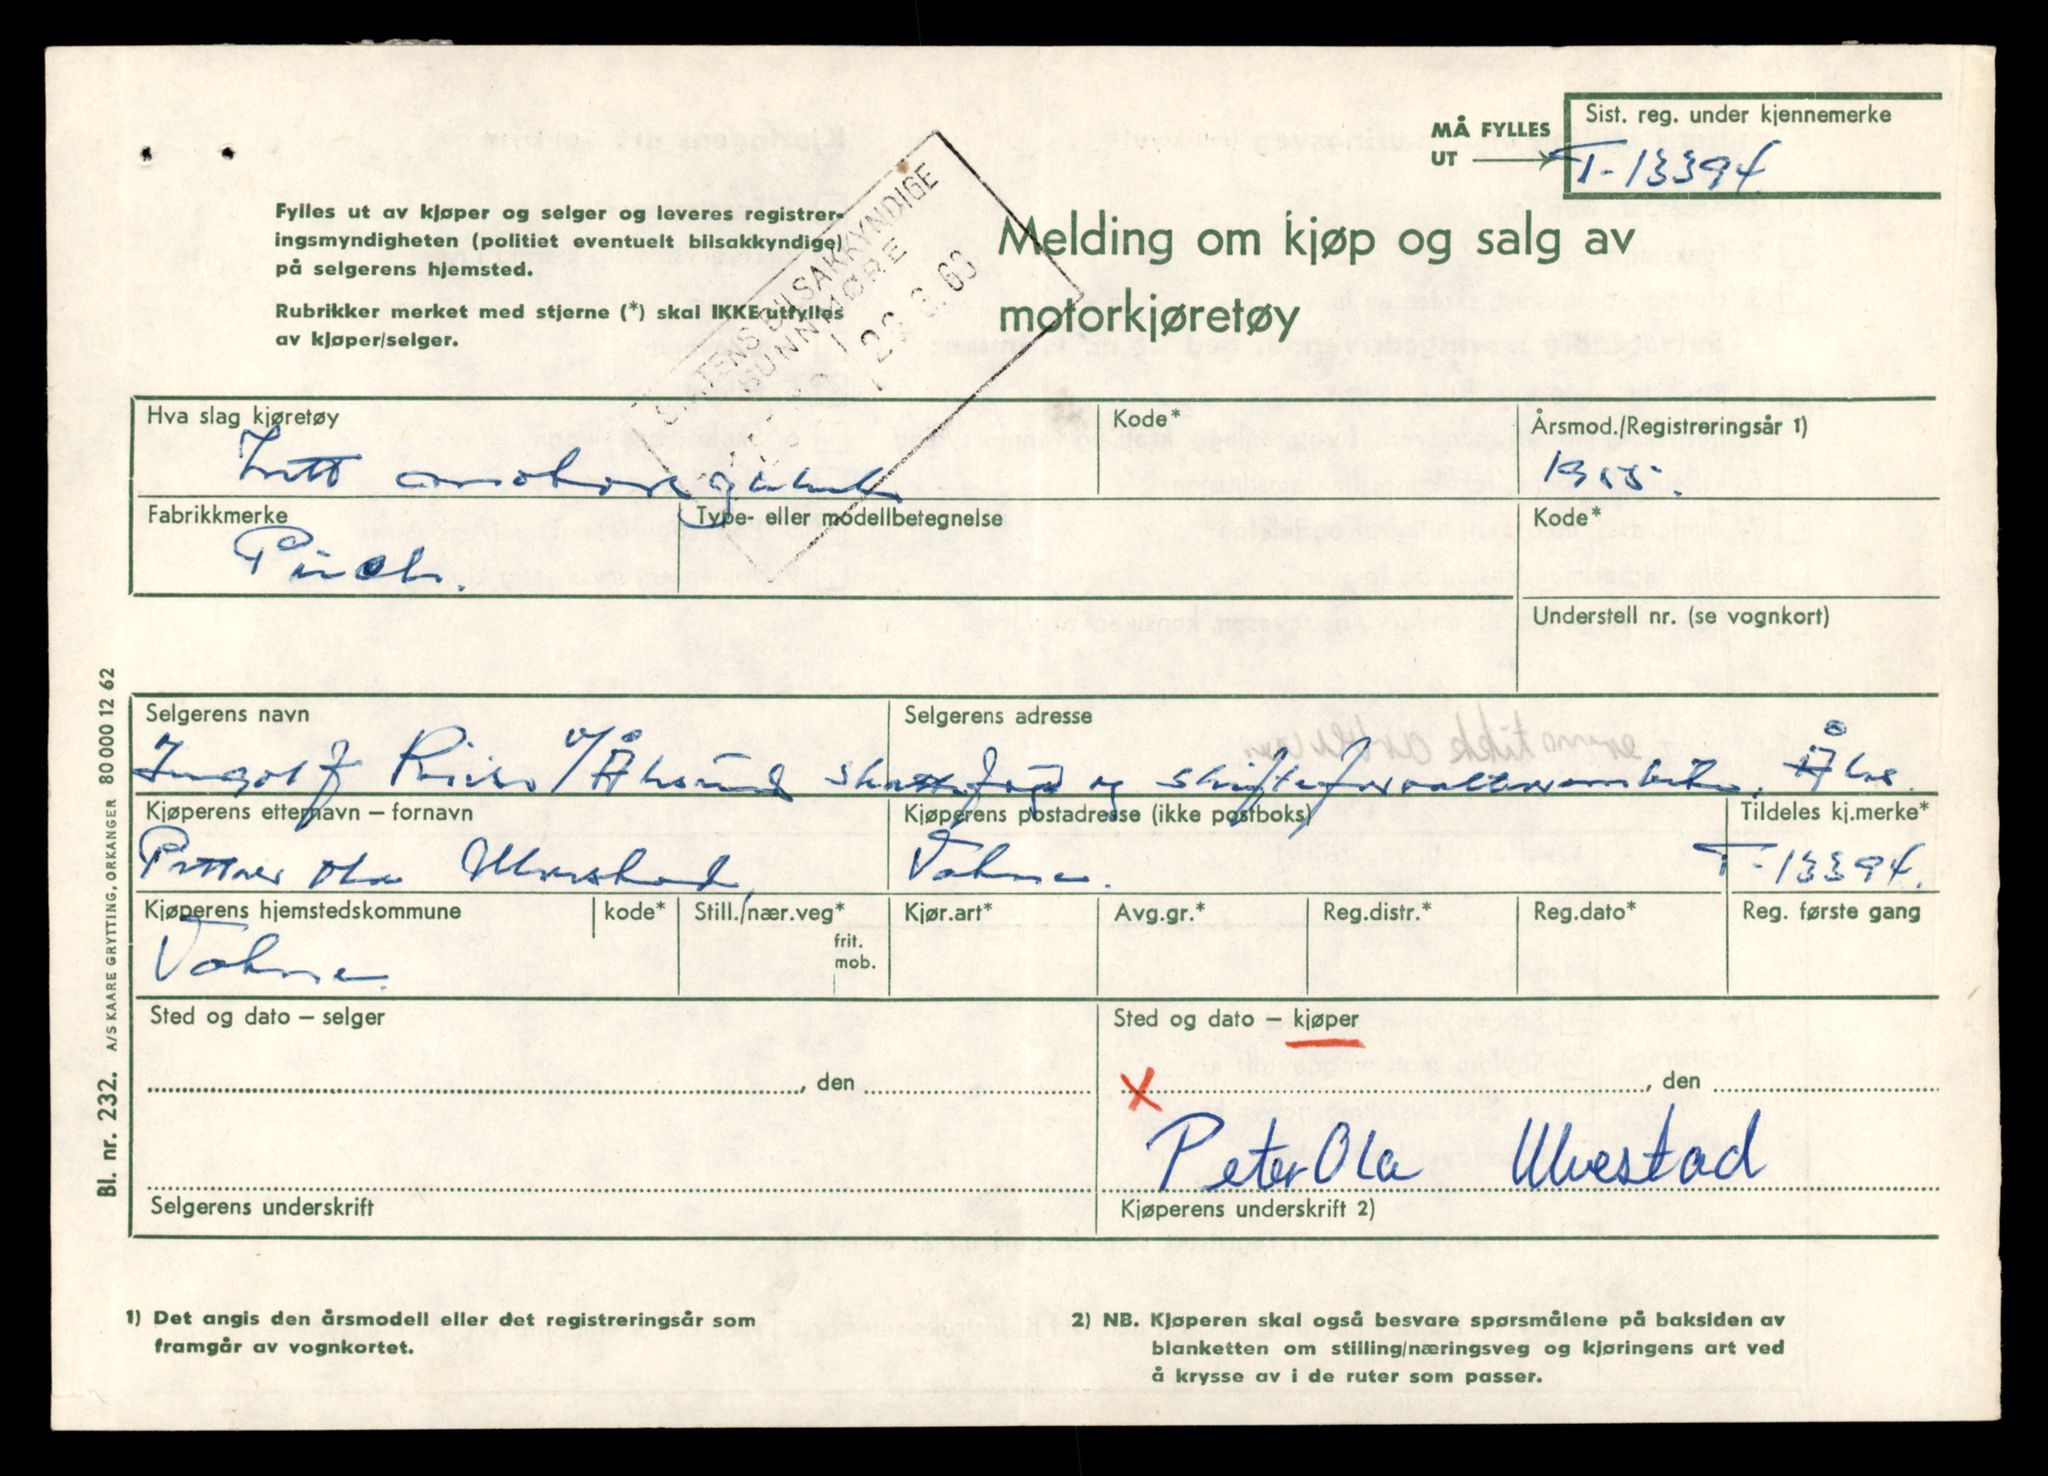 MÅ FYLLES UT
Sist. reg. under kjennemerke
T-13394
Fylles ut av kjøper og selger og leveres registrer-
ingsmyndigheten (politiet eventuelt bilsakkyndige)
på selgerens hjemsted.
Rubrikker merket med stjerne (*) skal IKKE utfylles
av kjøper/selger.
STATENS BILSAKKYNDIGE
SUNNMØRE
Melding om kjøp og salg av
motorkjøretøy
Hva slag kjøretøy
Kode*
Årsmod./Registreringsår 1)
Lett motorsykkel
1955.
Fabrikkmerke
Type- eller modellbetegnelse
Kode*
Puch.
Understell nr. (se vognkort)
Selgerens navn
Selgerens adresse
Ingolf v/Ålesund skattefogd og
Kjøperens etternavn – fornavn
Kjøperens postadresse (ikke postboks)
Tildeles kj.merke*
Petter Ola Ulvestad,
T-13394.
Kjøperens hjemstedskommune
kode*
Still./nær.veg*
frit.
mob.
Kjør.art*
Avg.gr.*
Reg.distr.*
Reg.dato*
Reg. første gang
Sted og dato – selger
Sted og dato – kjøper
, den
X , den
Peter Ola Ulvestad
Selgerens underskrift
Kjøperens underskrift 2)
1) Det angis den årsmodell eller det registreringsår som
framgår av vognkortet.
2) NB. Kjøperen skal også besvare spørsmålene på baksiden av
blanketten om stilling/næringsveg og kjøringens art ved
å krysse av i de ruter som passer.
Bl. nr. 232. A/S KAARE GRYTTING, ORKANGER 80 000 12 62